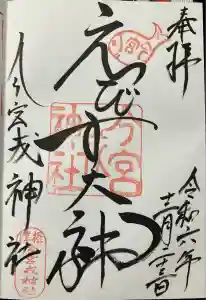 奉拝
令和六年
十二月十三日
えびす大神
今宮戎神社
今宮
神社